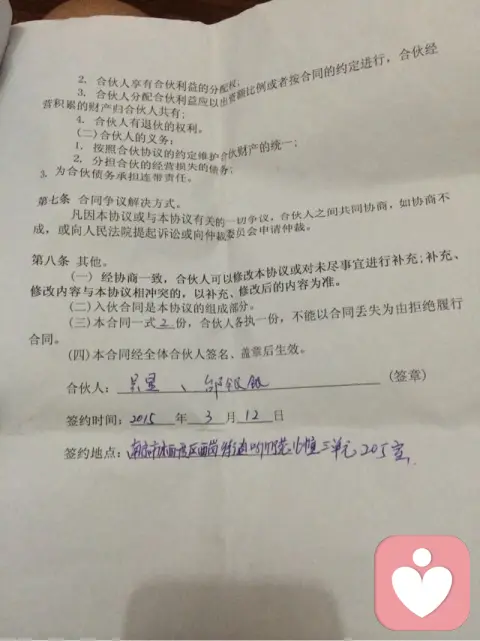 2. 合伙人享有合伙利益的分配权;
3. 合伙人分配合伙利益应以出资额比例或者按合同的约定进行,合伙经
营积累的财产归合伙人共有;
4. 合伙人有退伙的权利。
(二)合伙人的义务:
1. 按照合伙协议的约定维护合伙财产的统一;
2. 分担合伙的经营损失的债务;
3. 为合伙债务承担连带责任。
第七条 合同争议解决方式。
凡因本协议或与本协议有关的一切争议,合伙人之间共同协商,如协商不
成,或向人民法院提起诉讼或向仲裁委员会申请仲裁。
第八条 其他。
(一) 经协商一致,合伙人可以修改本协议或对未尽事宜进行补充;补充、
修改内容与本协议相冲突的,以补充、修改后的内容为准。
(二)入伙合同是本协议的组成部分。
(三)本合同一式2份,合伙人各执一份,不能以合同丢失为由拒绝履行
合同。
(四)本合同经全体合伙人签名、盖章后生效。
合伙人: 、邰银银 (签章)
签约时间:2015 年 3 月 12 日
签约地点:南京市栖霞区西岗 三单元205室